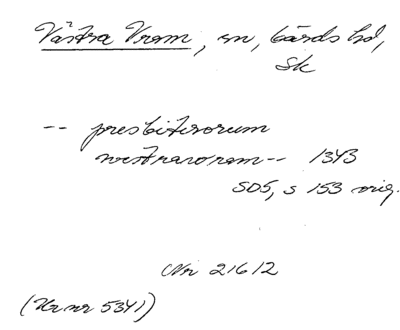 Västra Vram, sn, Gärds hd,
Sk
-- presbiterorum
westraworam -- 1343
SD5, s 153 orig.
Nr 21612
(Ur nr 5341)